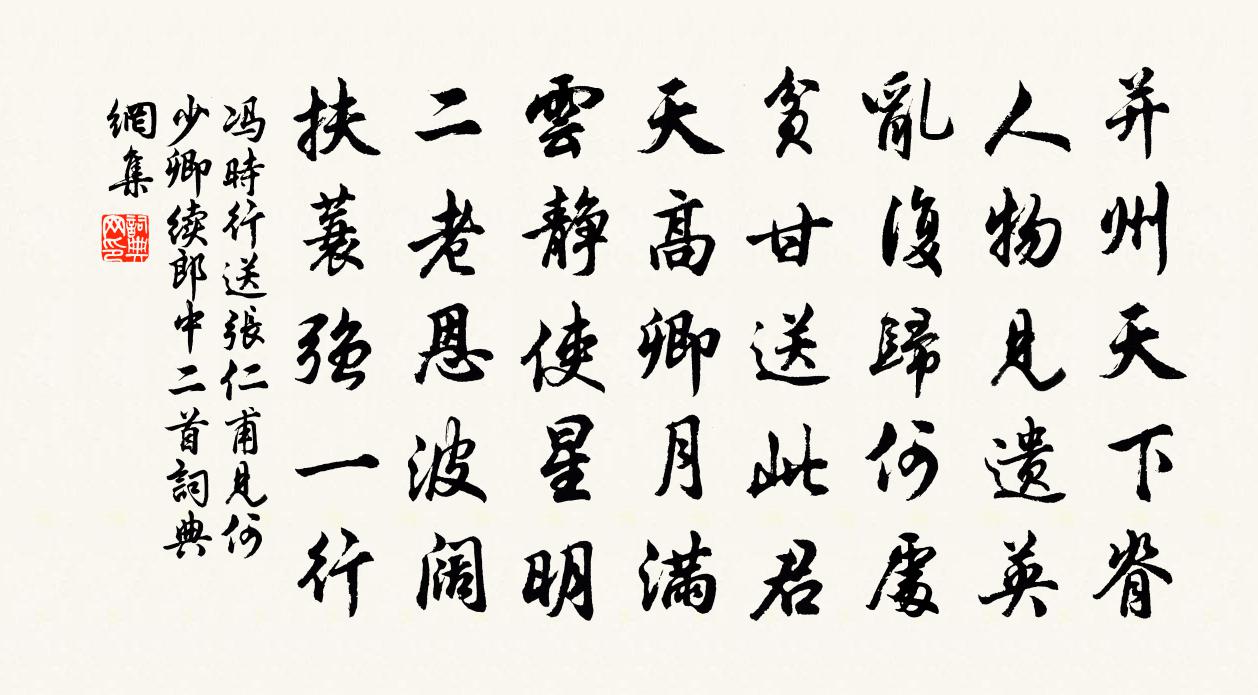 并州天下脊
人物見遺英
亂復歸何處
貧甘送此君
天高卿月滿
雲靜使星明
二老恩波闊
扶蓑強一行
冯時行送張仁甫見何
少卿续郎中二首詞典
網集
詞典
网印